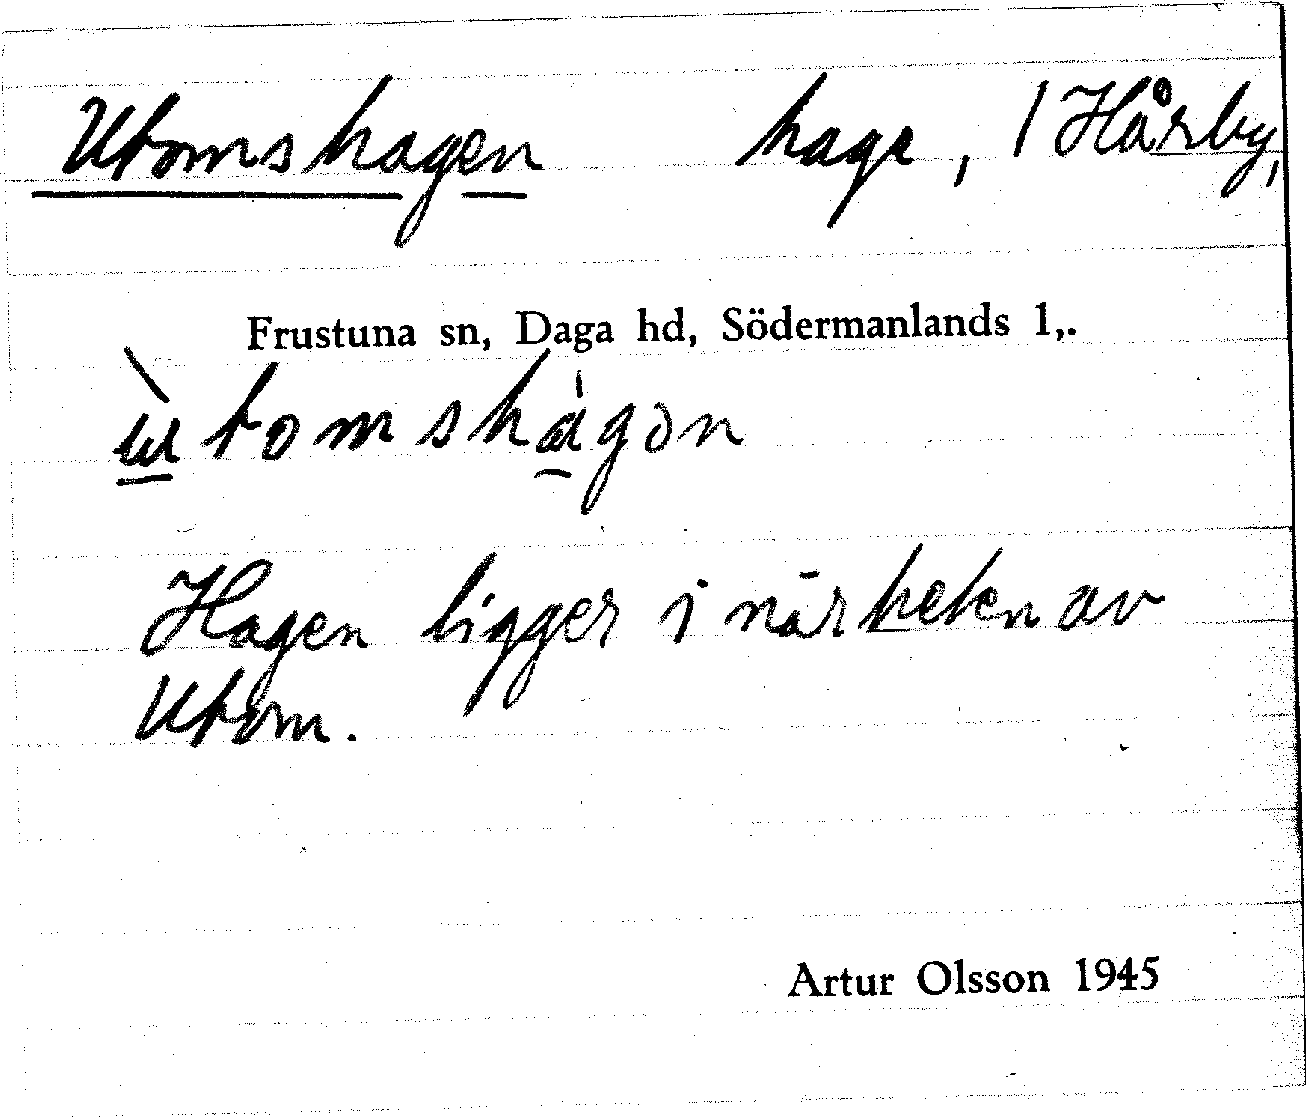 Utomshagen hage, 1 Hårby,
Frustuna sn, Daga hd, Södermanlands l,.
ùtomshágən
Hagen ligger i närheten av
Utom.
Artur Olsson 1945